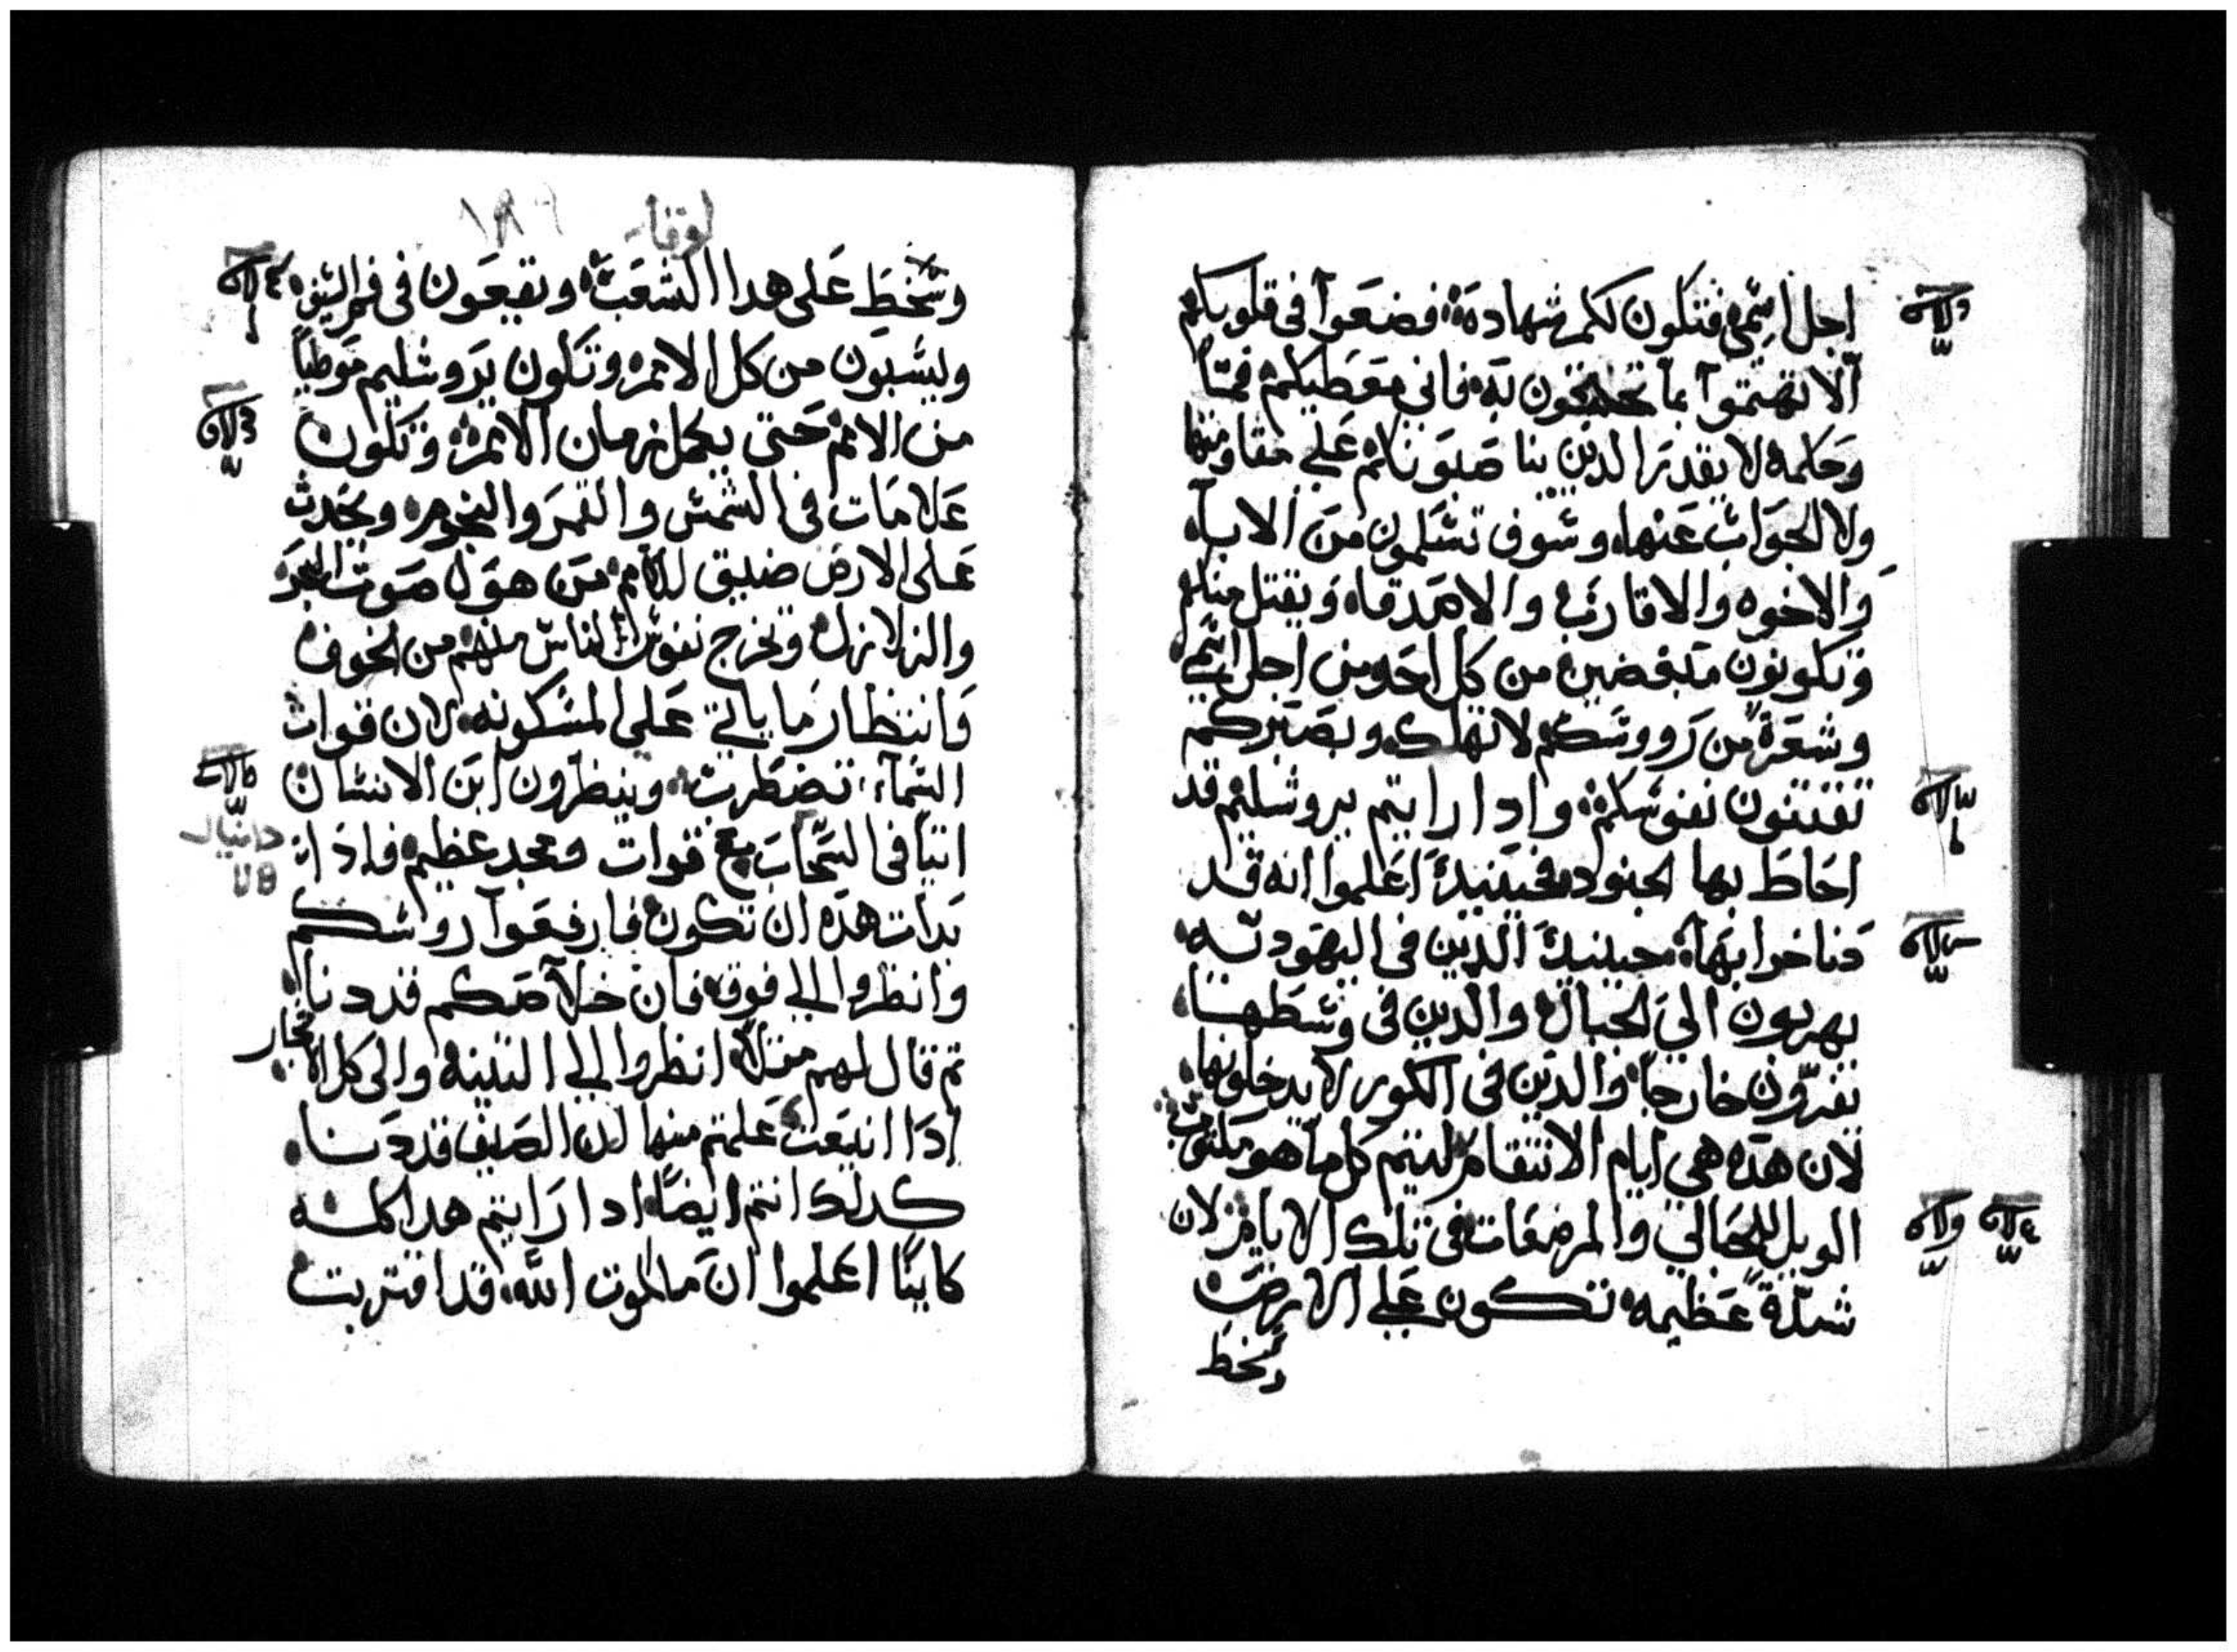 اجل اسمي فتكون لكم شهاده فضعوا في قلوبكم
الا تهتموا بما تحتجون به فاني معطيكم فمًا
وحكمه لا يقدر الدين يناصبونكم على مقاومتها
ولا الجواب عنها وسوف تسلمون من الاباء
والاخوه والاقارب والاصدقاء ويقتل منكم
وتكونون مبغضين من كل احد من اجل اسمي
وشعرة من رووسكم لا تهلك وبصبركم
تقتنون نفوسكم وادا رايتم يروشليم قد
احاط بها الجنود فحينيد اعلموا انه قد
دنا خرابها حينيد الدين في اليهوديه
يهربون الي الجبال والدين في وسطها
يفرون خارجا والدين في الكور لا يدخلونها
لان هده هي ايام الانتقام ليتم كل ما هو مكتوب
الويل للحبالي والمرضعات في تلك الايام لان
شدة عظيمه تكون علي الارض
وسخط
لوقا
١٨٩
وسخط على هدا الشعب ويقعون في فم السيف
ويسبون من كل الامم وتكون يروشليم موطيًا
من الامم حتى يكمل زمان الامم وتكون
علامات في الشمس والقمر والنجوم ويحدث
على الارض ضيق للامم من هول صوت البحر
والزلازل وتخرج نفوس الناس منهم من الخوف
وانتظار ما ياتي على المسكونه لان قوات
السماء تضطرب وينظرون ابن الانسان
اتيا في السحاب مع قوات ومجد عظيم فادا
دانيال
بدات هده ان تكون فارفعوا روسكم
وانظروا الى فوق فان خلاصكم قد دنا
تم قال لهم مثلا انظروا الى التينه والى كل الاشجار
ادا اينعت علمتم منها ان الصيف قد دنا
كدلك انتم ايضا ادا رايتم هدا كله
كاينًا اعلموا ان ملكوت الله قد اقتربت